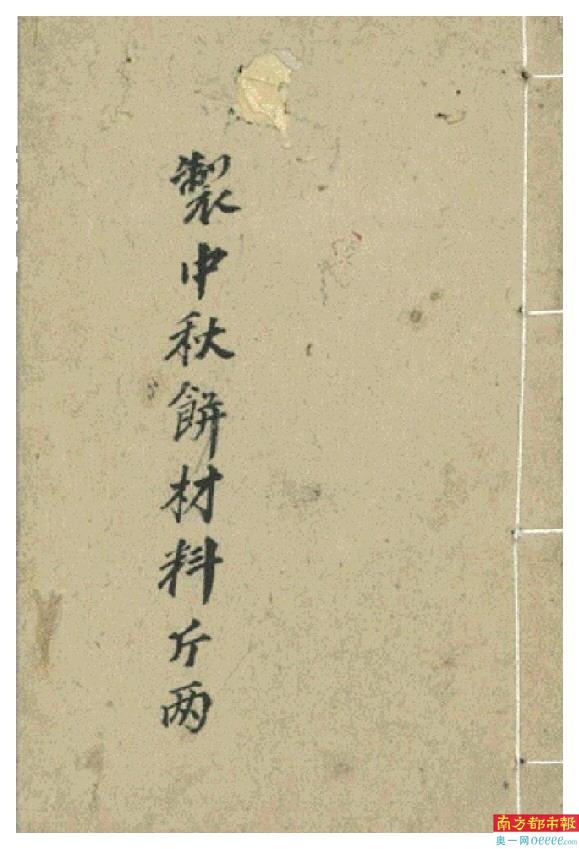 製中秋餅材料斤两
南方都市報
奥一网oeeee.com